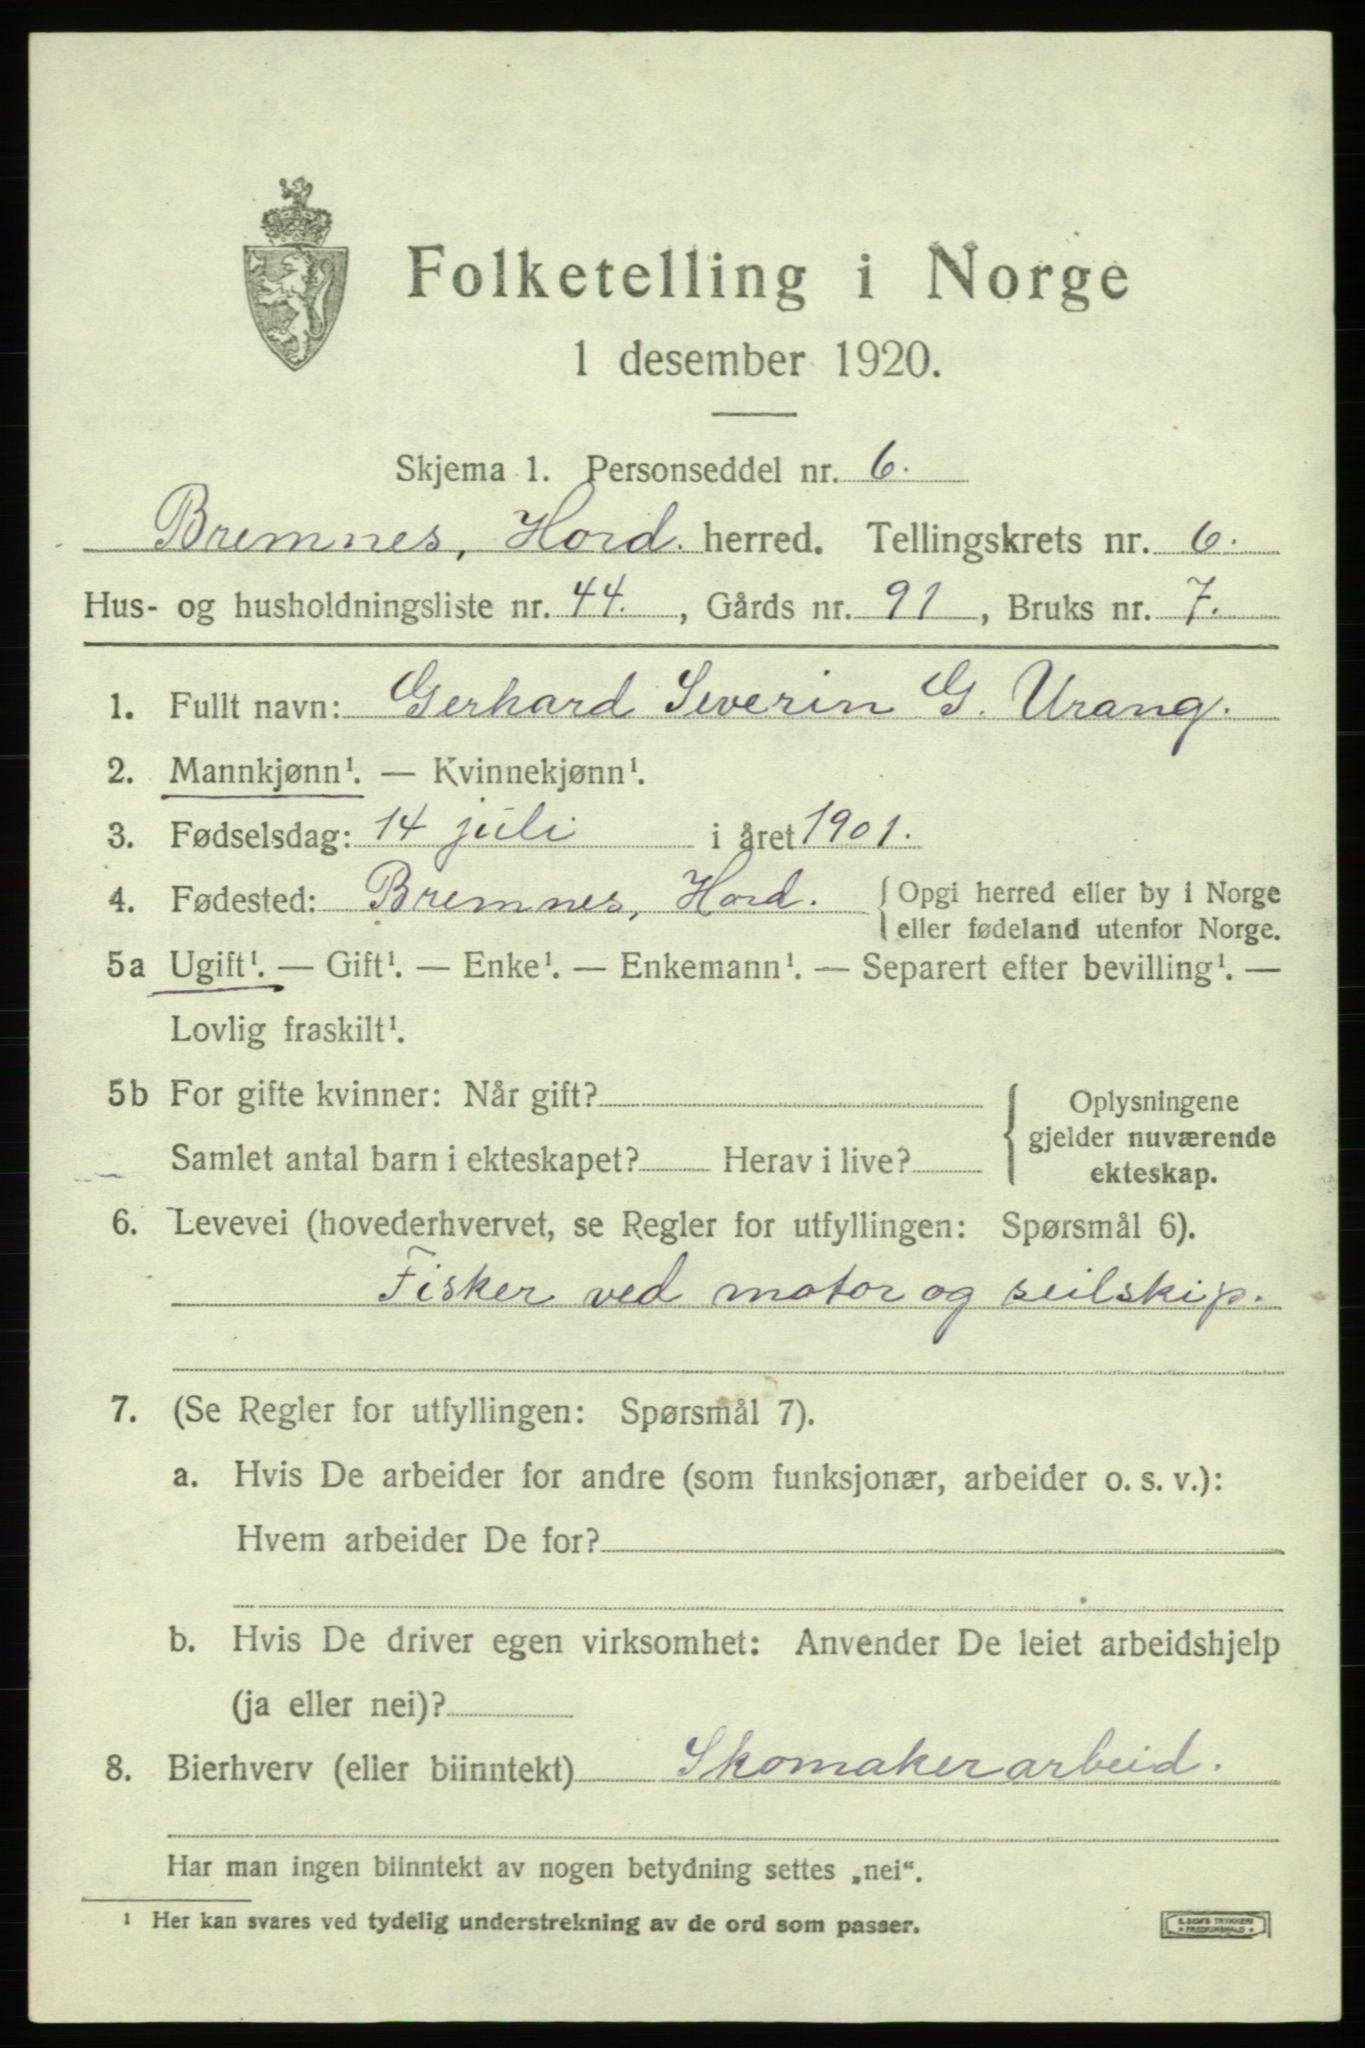 Folketelling i Norge
1 desember 1920.
Skjema 1. Personseddel nr. 6.
Bremnes, Hord. herred. Tellingskrets nr. 6.
Hus- og husholdningsliste nr. 44., Gårds nr. 91, Bruks nr. 7.
1. Fullt navn: Gerhard Severin G. Urang.
2. Mannkjønn¹. — Kvinnekjønn¹.
3. Fødselsdag: 14 juli i året 1901.
4. Fødested: Bremnes, Hord. { Opgi herred eller by i Norge
eller fødeland utenfor Norge.
5a Ugift¹. — Gift¹. — Enke¹. — Enkemann¹. — Separert efter bevilling¹. —
Lovlig fraskilt¹.
5b For gifte kvinner: Når gift?
Samlet antal barn i ekteskapet? Herav i live?
{ Oplysningene
gjelder nuværende
ekteskap.
6. Levevei (hovederhvervet, se Regler for utfyllingen: Spørsmål 6).
Fisker ved motor og seilskip.
7. (Se Regler for utfyllingen: Spørsmål 7).
a. Hvis De arbeider for andre (som funksjonær, arbeider o. s. v.):
Hvem arbeider De for?
b. Hvis De driver egen virksomhet: Anvender De leiet arbeidshjelp
(ja eller nei)?
8. Bierhverv (eller biinntekt) Skomakerarbeid.
Har man ingen biinntekt av nogen betydning settes „nei“.
¹ Her kan svares ved tydelig understrekning av de ord som passer.